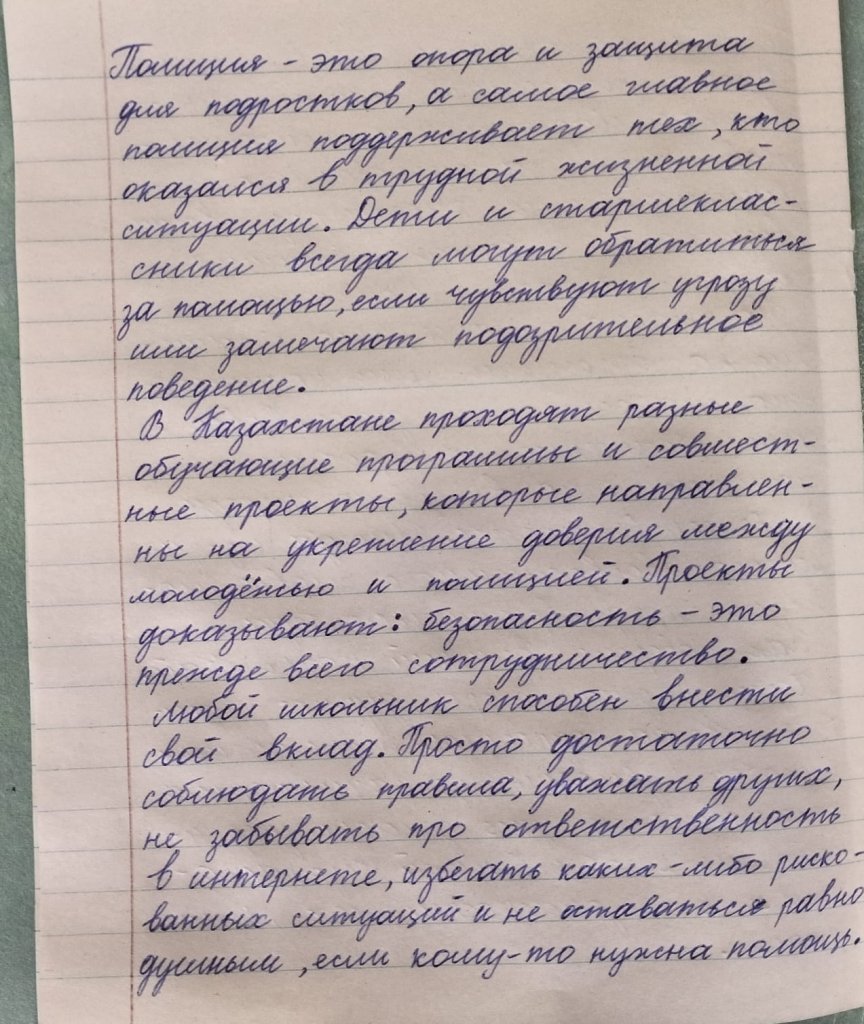 Полиция – это опора и защита
для подростков, а самое главное
полиция поддерживает тех, кто
оказался в трудной жизненной
ситуации. Дети и старшеклас-
сники всегда могут обратиться
за помощью, если чувствуют угрозу
или замечают подозрительное
поведение.
В Казахстане проходят разные
обучающие программы и совмест-
ные проекты, которые направлен-
ны на укрепление доверия между
молодёжью и полицией. Проекты
доказывают: безопасность – это
прежде всего сотрудничество.
Любой школьник способен внести
свой вклад. Просто достаточно
соблюдать правила, уважать других,
не забывать про ответственность
в интернете, избегать каких-либо риско-
ванных ситуаций и не оставаться равно
душным, если кому-то нужна помощь.